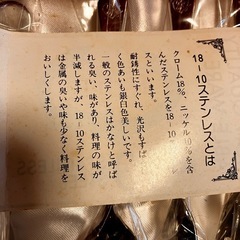 18-10ステンレスとは
クローム18%、ニッケル10%を含
んだステンレスを18-10ステンレ
スといいます。
耐銹性にすぐれ、光沢もすば
く色あいも銀白色美しいです。
一般のステンレスはかなけと呼ば
れる臭い、味があり、料理の味が
半減しますが、18-10ステンレス
は金属の臭いや味も少なく料理を
おいしくします。